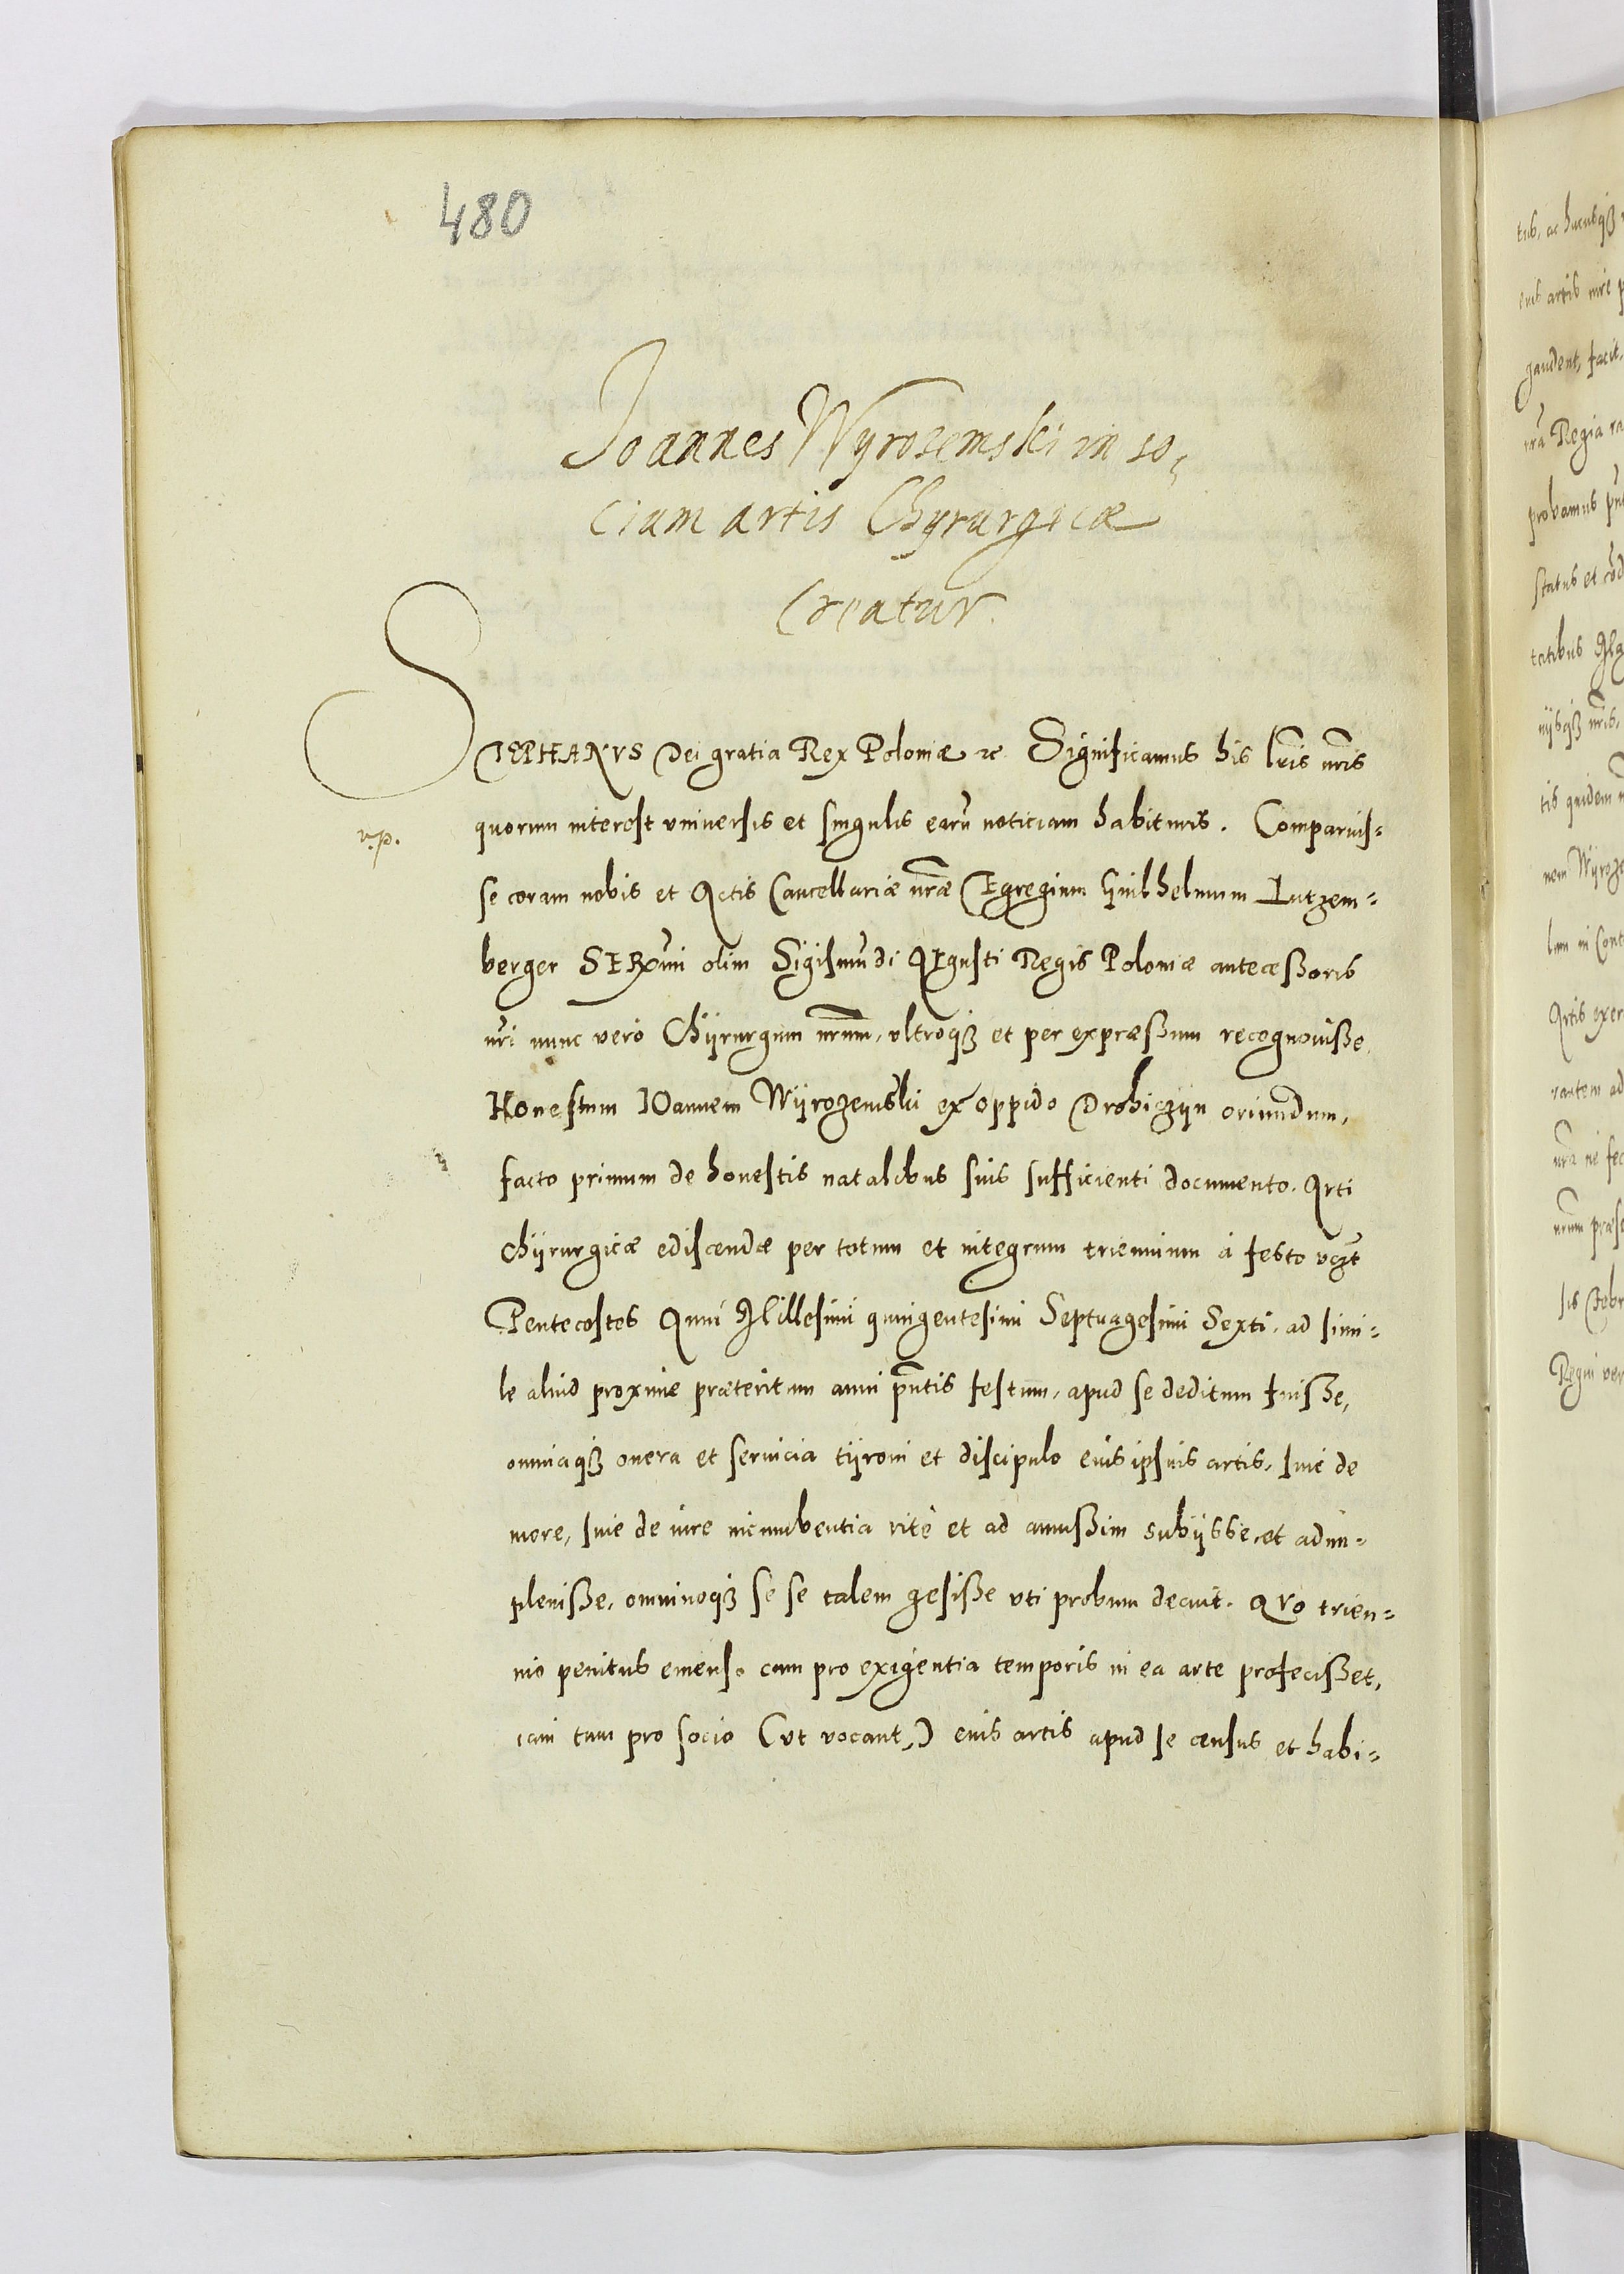 480
Joannes Wyrozemski in so,
cium artis Chyrurgicæ
Creatur.
STEPHANVS Dei gratia Rex Poloniæ etc. Significamus his lr̃is nr̃is
v.p.
quorum interest vniuersis et singulis earũ noticiam habituris. Comparuis=
se coram nobis et Actis Cancellariæ nr̃æ Egregium Guilhelmum Lutzem=
berger SERmi olim Sigismũdi AVgusti Regis Poloniæ antecæßoris
nr̃i nunc verò Chÿrurgum nr̃um, vltroqȝ et per expræßum recognouiße
Honestum IOannem Wÿrozemski ex oppido Drohiczÿn oriundum,
facto primum de honestis natalibus suis sufficienti documento. Arti
Chÿrurgicæ ediscendæ per totum et integrum triennium à festo vczt
Pentecostes Anni Millesimi quingentesimi Septuagesimi Sexti, ad simi=
le aliud proxime præteritum anni pñtis festum, apud se deditum fuiße,
omniaqȝ onera et seruicia tÿroni et discipulo eius ipsius artis, siue de
more, siue de iure incumbentia ritè et ad amußim subÿsse, et adim=
pleuiße, omninoqȝ se se talem gesiße vti probum decuit. QVo trien=
nio penitus emenso cum pro exigentia temporis in ea arte profecißet,
iam tum pro socio (vt vocant,) eius artis apud se census et habi=
tus, ac hucusqȝ
eius artis
gaudent, facit,
nr̃a Regia
probamus
status et
tatibus
nr̃is,
tis quidem
nem Wÿroze
lum in
Artis exer
nr̃a ne
nr̃um præse
sis Febr
Regni